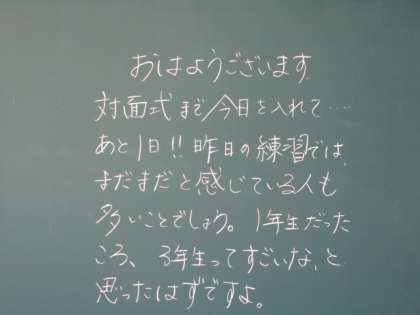 おはようございます
対面式まで今日を入れて‥‥
あと1日!!昨日の練習では、
まだまだと感じている人も
多いことでしょう。1年生だった
ころ、3年生ってすごいな、と
思ったはずですよ。